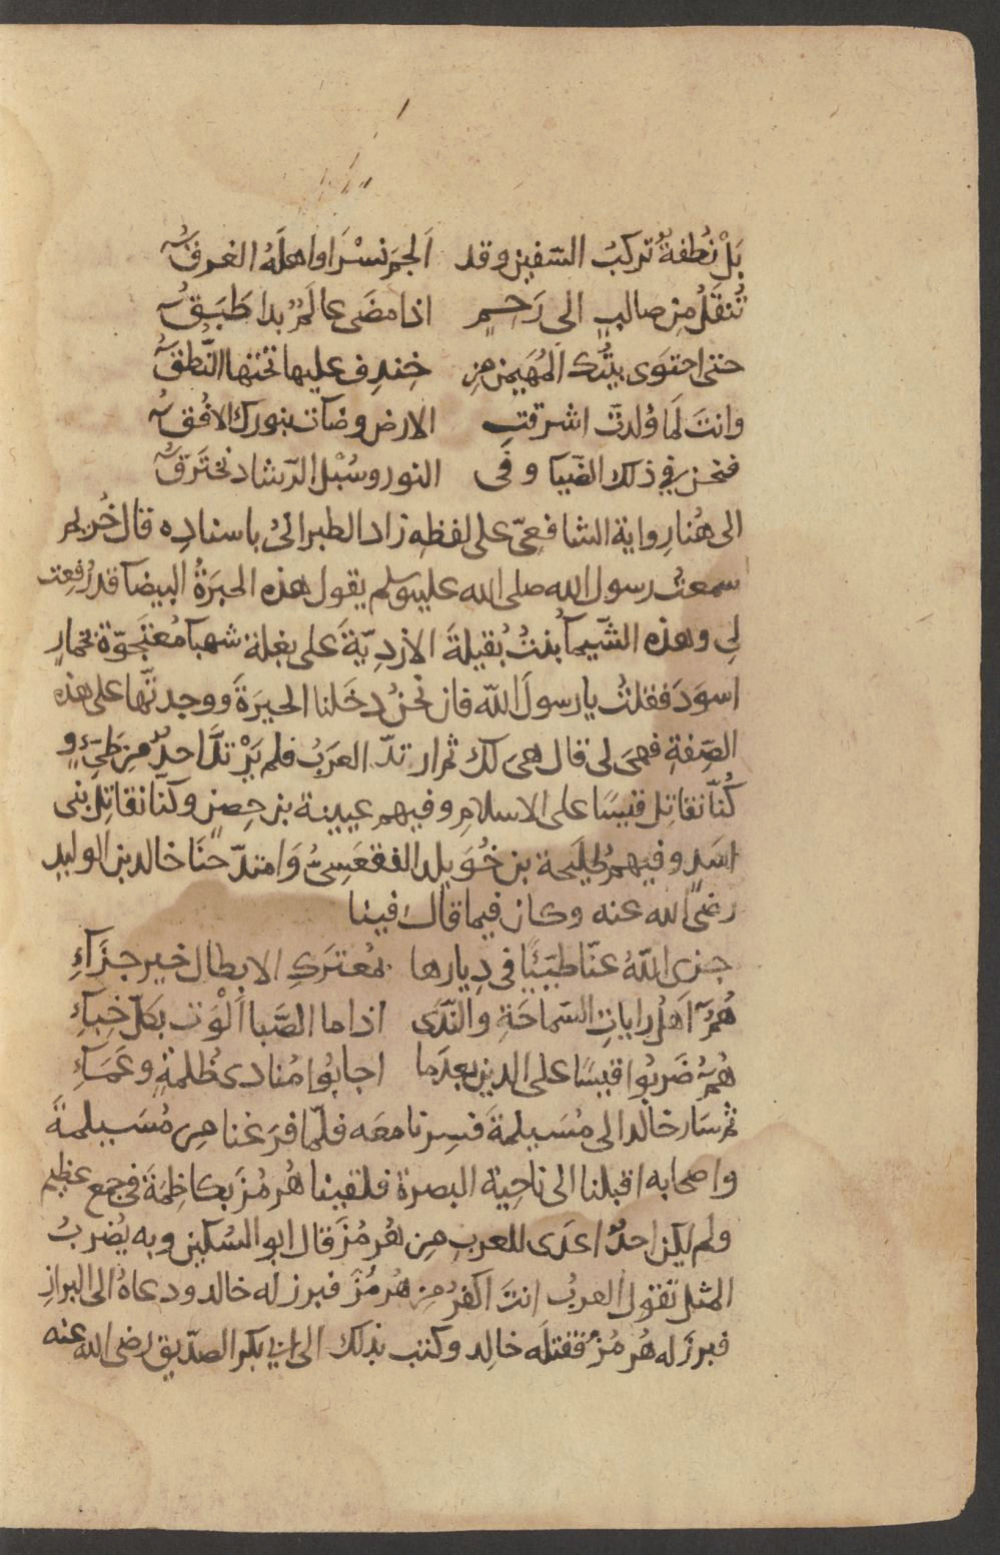 بَلْ نُطفةٌ تركبُ السّفين وقد    اَلجمَ نسْرًا واهلَهُ الغرقُ
تُنقَلُ مِن صالبٍ الى رَحِمٍ    اذا مضَى عالَمٌ بدا طَبَقُ
حتى احتوَى بيتُك المُهَيمن مِن    خِندِف عليها تحتها النُّطقُ
وانتَ لَما وُلدتَ اشرقتِ    الارض وضآت بنورك الافُق
فنحن في ذلك الضّيا وفى    النور وسُبْل الرّشاد نختَرقُ
الى هُنا رِواية الشافعيّ على لفظِه زاد الطبرانىُ باسنادِه قال خُريم
سمعتُ رسول الله صلى الله عليه وسلم يقول هذه الحيرَةُ البيضآ قد رُفِعت
لِى وهذه الشّيمآ بنتُ بُقيلةَ الازدِيّةَ على بغلة شهبآ مُعتَجِرَة بخمارٍ
اسوَدَ فقلتُ يا رسولَ الله فان نحنُ دخَلنا الحيرَةَ ووجدتُّها على هذه
الصِّفةِ فهىَ لى قال هى لك ثم ارتدّت العرَبُ فلم يَرْتدَّ احدٌ مِن طَيّءٍ و
كُنّا نقاتِل قيسًا على الاسلامِ وفيهم عيينة بن حِصنٍ وكنّا نقاتِلُ بنى
اسَدٍ وفيهم طُلَيحة بن خُوَيلد الفقعَسِىُّ وَامتدَحنَا خالد بن الوليدِ
رضىَ الله عنه وكان فيما قال فينا
جزى اللهُ عنّا طيّئًا فى دِيارها    بمُعترَكِ الابطال خير جزَآءِ
هُمُ اَهلُ راياتِ السّماحَةِ والنّدَى    اذا ما الصَّبا اَلْوَت بكلّ خِبآءِ
هُمُ ضَربُوا قيسًا على الدين بعدَما    اجابُوا مُنادى ظُلمةٍ وعَمَآءِ
ثم سَار خالد الى مُسَيلمةَ فسِرنا معَه فلمّا فرَغنا مِن مُسَيلمةَ
واصحابه اقبلنا الى ناحِية البصرة فلقينا هُرمُزَ بكاظِمَةَ فى جمع عظيم
ولم يكن احدٌ اعدَى للعربِ مِن هُرمُزَ قال ابو السُكين وبه يُضربُ
المثل تقول العربُ انتَ اكفرُ مِن هُرمُزَ فبرز له خالد ودعاهُ الى البرازِ
فبرزَ له هُرمُزُ فقتلَه خالِد وكتب بذلك الى ابى بكر الصدّيق رضى الله عنه